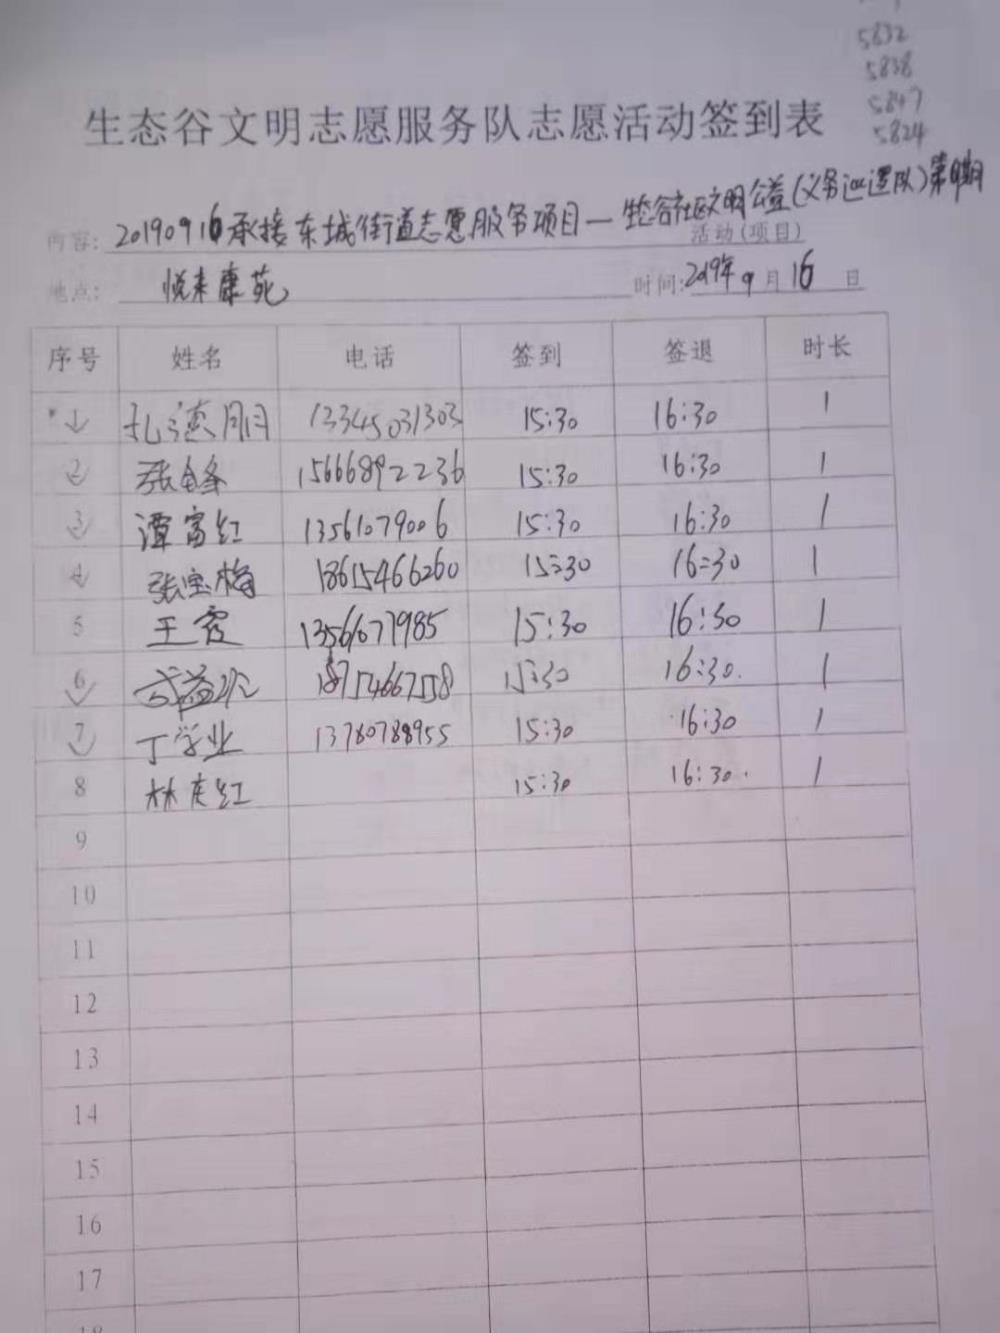 5832
5838
5847
5824
生态谷文明志愿服务队志愿活动签到表
内容: 20190916承接东城街道志愿服务项目—生态谷社区文明公益(义务巡逻队)第 期
活动(项目)
地点: 悦来康苑 时间:2019年9月16日
序号 姓名 电话 签到 签退 时长
1 孔德刚 13345031303 15:30 16:30 1
2 张峰 15666892236 15:30 16:30 1
3 谭富红 13561079006 15:30 16:30 1
4 张宝梅 18615466260 15:30 16:30 1
5 王霞 13561071985 15:30 16:30 1
6 18754667558 15:30 16:30. 1
7 丁学业 13780788955 15:30 16:30 1
8 林 红 15:30 16:30. 1
9
10
11
12
13
14
15
16
17
18